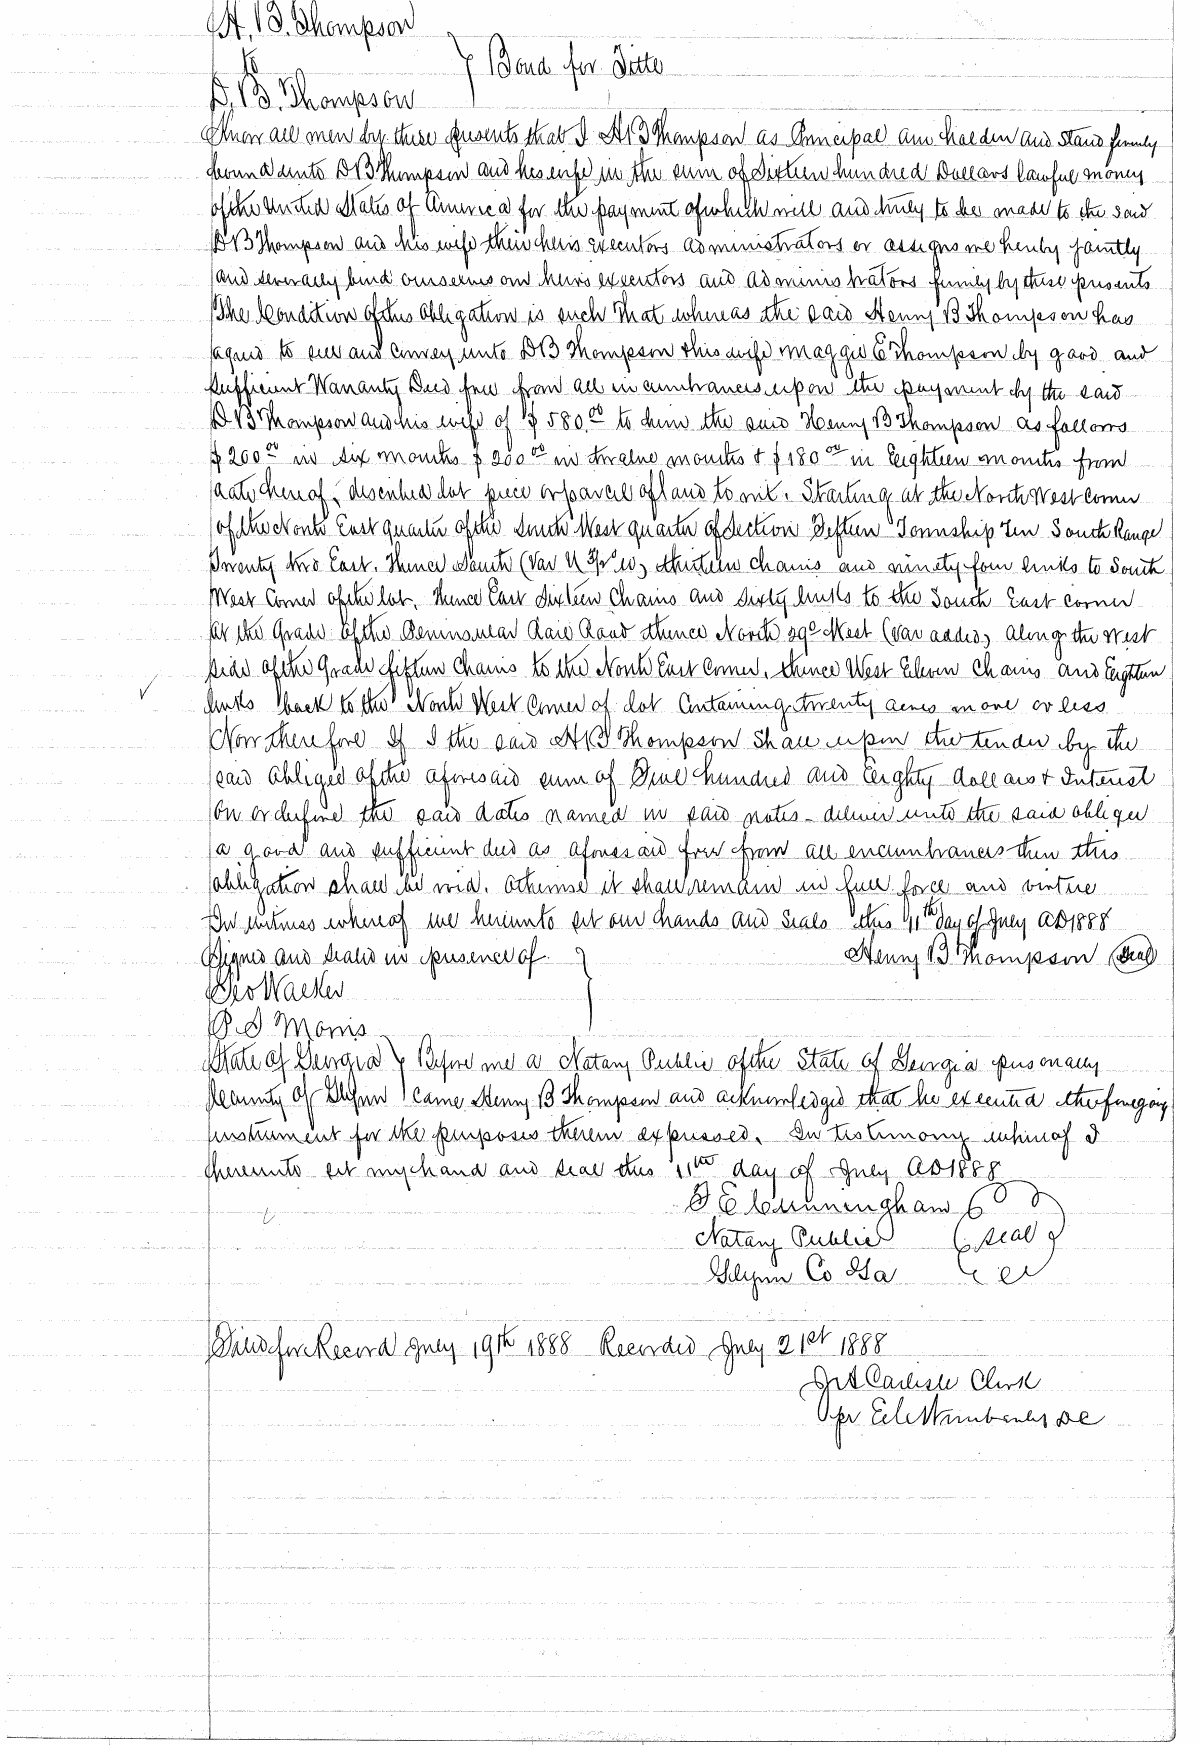 H. B. Thompson
to } Bond for Title
D. B. Thompson
Know all men by these presents that I H B Thompson as Principal am holden and stand firmly
bound unto D B Thompson and his wife in the sum of Sixteen hundred Dollars lawful money
of the United States of America for the payment of which well and truly to be made to the said
D B Thompson and his wife their heirs executors administrators or assigns we hereby jointly
and severally bind ourselves our heirs executors and administrators firmly by these presents
The Condition of this obligation is such that whereas the said Henry B Thompson has
agreed to sell and convey unto D B Thompson & his wife Maggie E Thompson by good and
sufficient Warranty Deed free from all incumbrances upon the payment by the said
D B Thompson and his wife of $580.00 to him the said Henry B Thompson as follows
$200.00 in six months $200.00 in twelve months & $180.00 in Eighteen months from
date hereof, described lot piece or parcel of land to wit. Starting at the North West Corner
of the North East quarter of the South West quarter of Section Fifteen Township Ten South Range
Twenty two East. Thence South thirteen chains and ninety four links to South
West Corner of the lot. thence East Sixteen Chains and Sixty links to the South East corner
at the Grade of the Peninsular Rail Road thence North 29° West (Var added) along the West
side of the Grade fifteen Chains to the North East Corner, thence West Eleven Chains and Eighteen
links back to the North West Corner of lot Containing twenty acres more or less
Now therefore If I the said H B Thompson shall upon the tender by the
said obligee of the aforesaid sum of Five hundred and Eighty dollars & Interest
on or before the said dates named in said notes - deliver unto the said obligee
a good and sufficient deed as aforesaid free from all encumbrances then this
obligation shall be void. otherwise it shall remain in full force and virtue
In witness whereof we hereunto set our hands and seals this 11th day of July AD 1888
Signed and sealed in presence of } Henry B Thompson (Seal)
Geo Walker
P. S Morris
State of Georgia } Before me a Notary Public of the State of Georgia personally
County of Glynn } came Henry B Thompson and acknowledged that he executed the foregoing
instrument for the purposes therein expressed. In testimony whereof I
hereunto set my hand and seal this 11th day of July AD 1888
Cunningham
Notary Public (seal)
Glynn Co Ga
Filed for Record July 19th 1888 Recorded July 21st 1888
Carlisle Clerk
pr DC